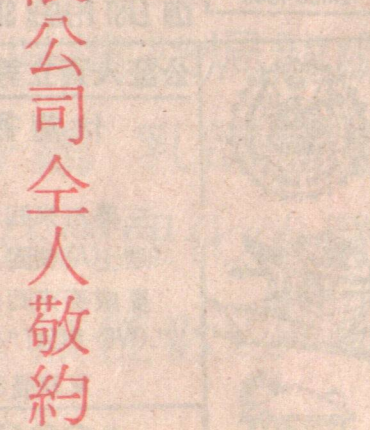 公司仝人敬約